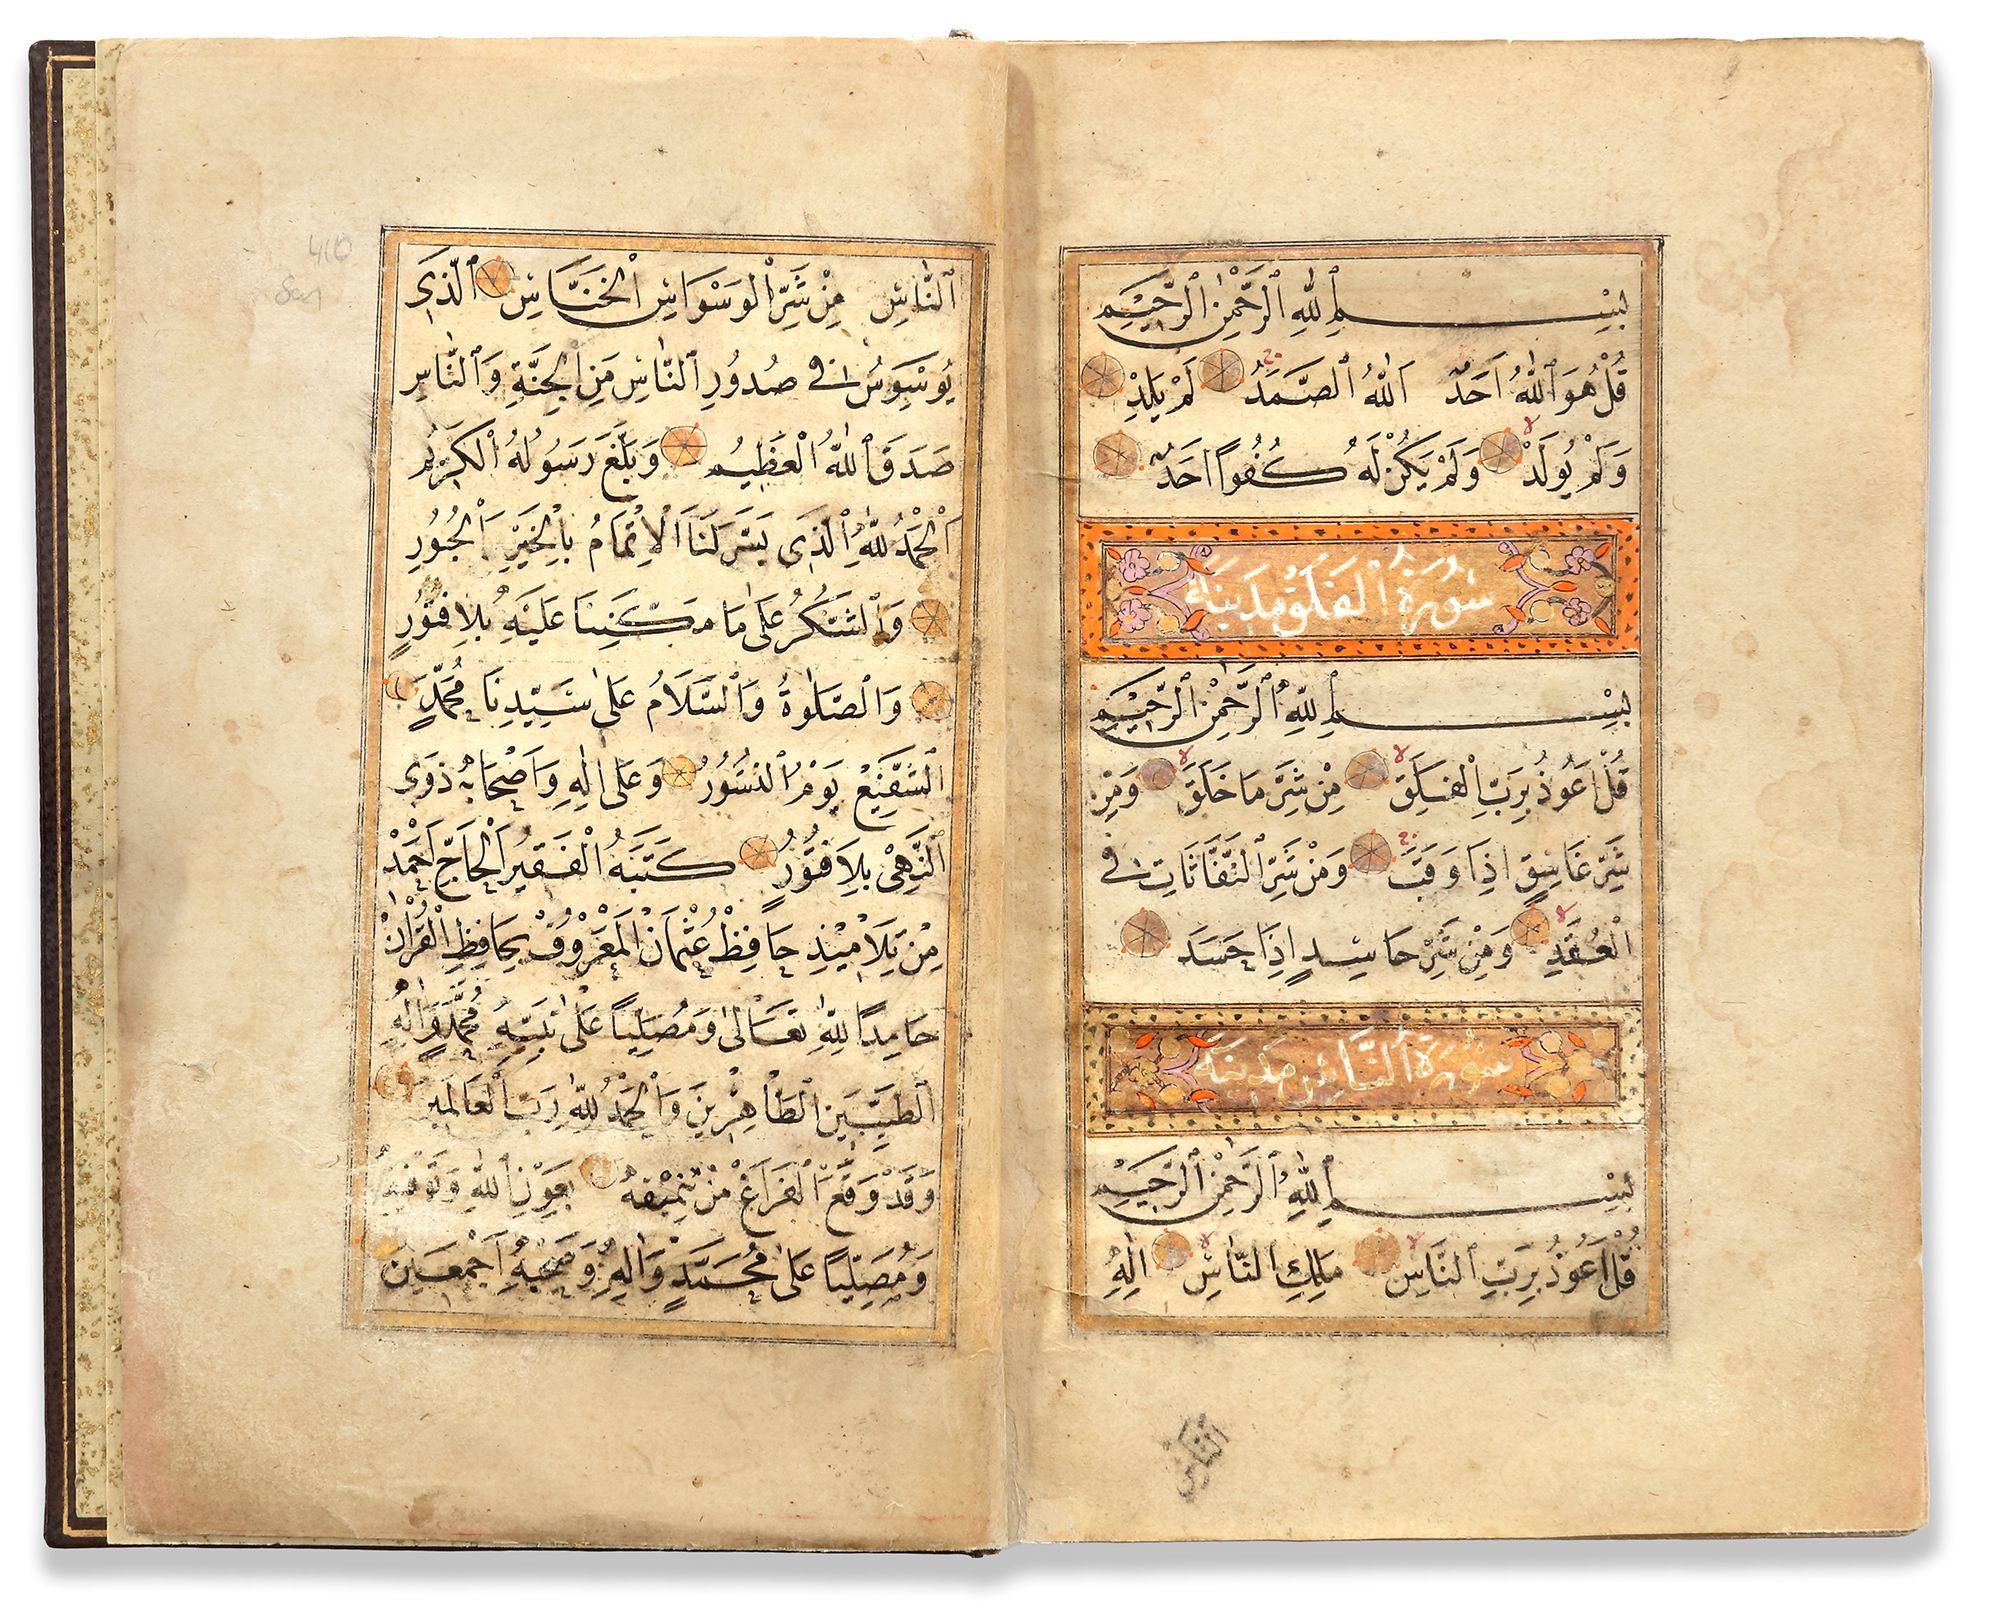 بِسْمِ اللّٰهِ الرَّحْمٰنِ الرَّحِيْمِ
قُلْ هُوَ اللّٰهُ اَحَدٌ اَللّٰهُ الصَّمَدُ لَمْ يَلِدْ
وَلَمْ يُولَدْ وَلَمْ يَكُنْ لَهُ كُفُواً اَحَدٌ
سُورَةُ الْفَلَقِ مَدَنِيَّة
بِسْمِ اللّٰهِ الرَّحْمٰنِ الرَّحِيْمِ
قُلْ اَعُوذُ بِرَبِّ الْفَلَقِ مِنْ شَرِّ مَا خَلَقَ وَمِنْ
شَرِّ غَاسِقٍ اِذَا وَقَبَ وَمِنْ شَرِّ النَّفَّاثَاتِ فِى
الْعُقَدِ وَمِنْ شَرِّ حَاسِدٍ اِذَا حَسَدَ
سُورَةُ النَّاسِ مَدَنِيَّة
بِسْمِ اللّٰهِ الرَّحْمٰنِ الرَّحِيْمِ
قُلْ اَعُوذُ بِرَبِّ النَّاسِ مَلِكِ النَّاسِ اِلٰهِ
النَّاسِ
النَّاسِ مِنْ شَرِّ الْوَسْوَاسِ الْخَنَّاسِ الَّذِى
يُوَسْوِسُ فِى صُدُورِ النَّاسِ مِنَ الْجِنَّةِ وَالنَّاسِ
صَدَقَ اللّٰهُ الْعَظِيْمُ وَبَلَّغَ رَسُولُهُ الْكَرِيْمُ
اَلْحَمْدُ لِلّٰهِ الَّذِى يَسَّرَ لَنَا الْاِتْمَامُ بِالْخَيْرِ الْحُبُورِ
وَالشُّكْرُ عَلَى مَا مَكَّنَنَا عَلَيْهِ بِلَا فُتُورٍ
وَالصَّلٰوةُ وَالسَّلَامُ عَلٰى سَيِّدِنَا مُحَمَّدٍ
الشَّفِيْعِ يَوْمَ النُّشُورِ وَعَلٰى اٰلِهِ وَاَصْحَابِهِ ذَوِى
النُّهٰى بِلَا فُتُورٍ كَتَبَهُ الْفَقِيْرُ الْحَاجّ اَحْمَدْ
مِنْ تَلَامِيْذِ حَافِظْ عُثْمَانْ الْمَعْرُوفْ بِحَافِظِ الْقُرْاٰنْ
حَامِدًا لِلّٰهِ تَعَالٰى وَمُصَلِّيًا عَلٰى نَبِيِّهِ مُحَمَّدٍ وَاٰلِهِ
الطَّيِّبِيْنَ الطَّاهِرِيْنَ وَالْحَمْدُ لِلّٰهِ رَبِّ الْعَالَمِيْنَ
وَقَدْ وَقَعَ الْفَرَاغْ مِنْ تَنْمِيْقِهِ بِعَوْنِ اللّٰهِ وَتَوْفِيْقِهِ
وَمُصَلِّيًا عَلٰى مُحَمَّدٍ وَاٰلِهِ وَصَحْبِهِ اَجْمَعِيْنَ
410